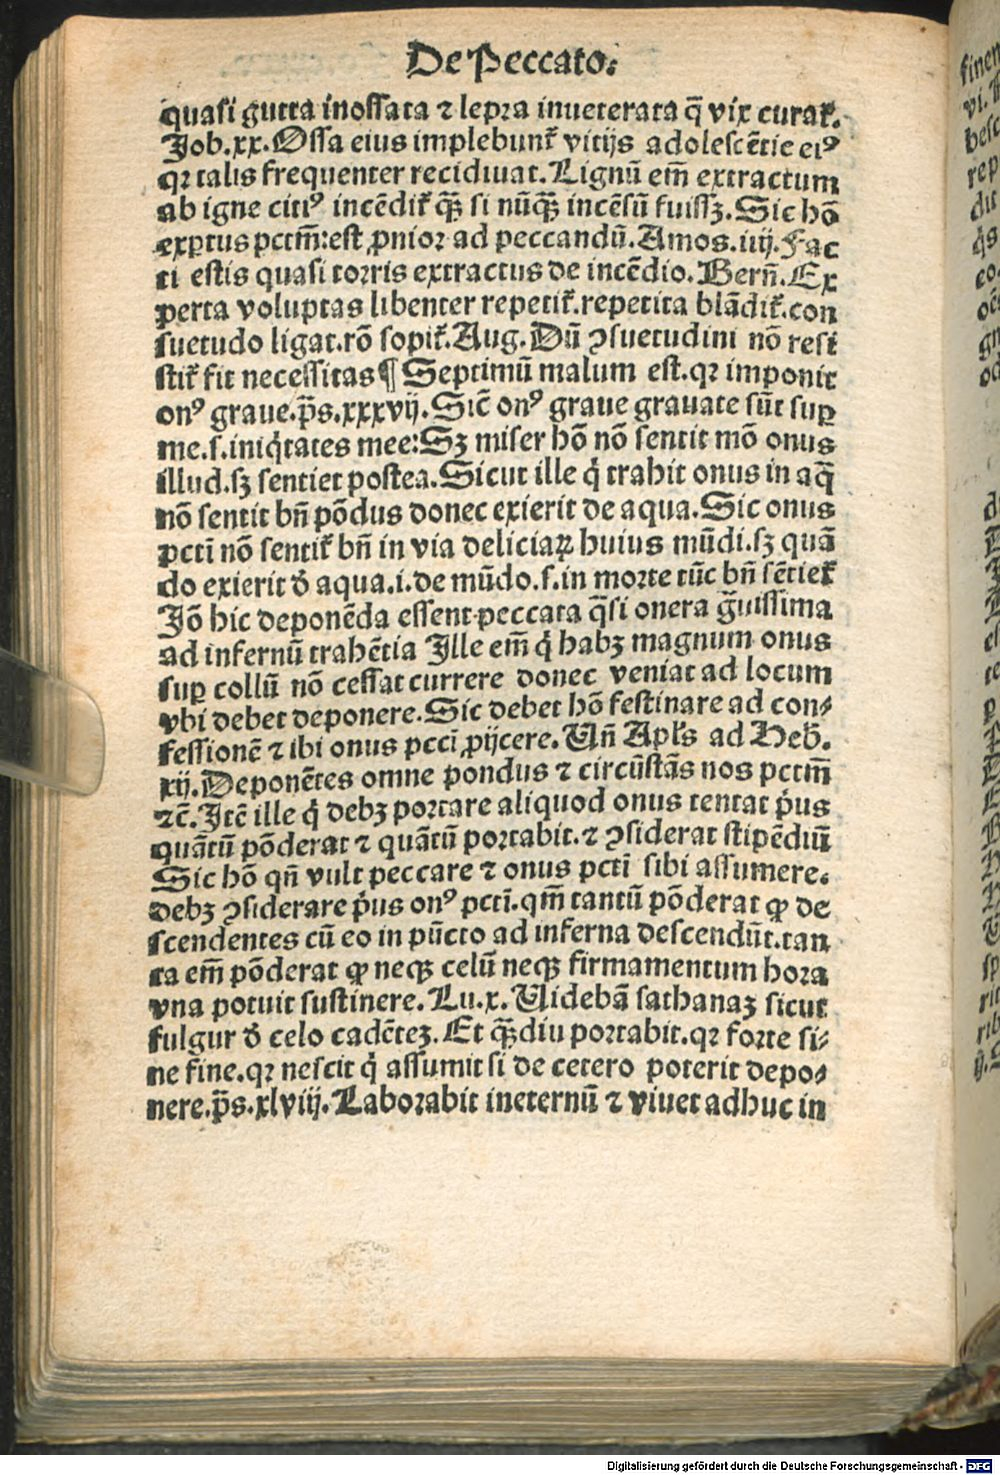 De Peccato.
quasi gutta inossata ⁊ lepra inueterata q̄ vix curat᷑.
Job.xx. Ossa eius implebunt᷑ vitijs adolescētie eiꝰ
qꝛ talis frequenter recidiuat. Lignū em̄ extractum
ab igne citiꝰ incēdit᷑ qꝫ̄ si nūqꝫ̄ incēsū fuissꝫ. Sic hō
exꝑtus pctm̄: est ꝓnior ad peccandū. Amos.iiij. Fac
ti estis quasi torris extractus de incēdio. Bern̄. Ex
perta voluptas libenter repetit᷑. repetita blādit᷑. con
suetudo ligat. rō sopit᷑. Aug. Dū ꝯsuetudini nō resi
stit᷑ fit necessitas ¶ Septimū malum est. qꝛ imponit
onꝰ graue. p̄s.xxxvij. Sic̄ onꝰ graue grauate sūt suꝑ
me.s. iniq̇tates mee: Sꝫ miser hō nō sentit mō onus
illud. sꝫ sentiet postea. Sicut ille q̇ trahit onus in aq̄
nō sentit bn̄ pōdus donec exierit de aqua. Sic onus
pcti̅ nō sentit᷑ bn̄ in via deliciaꝝ huius mūdi. sꝫ quā
do exierit đ aqua.i. de mūdo.s. in morte tūc bn̄ sētiet᷑
Jō hic deponēda essent peccata q̄si onera ḡuissima
ad infernū trahētia Ille em̄ q̇ habꝫ magnum onus
suꝑ collū nō cessat currere donec veniat ad locum
vbi debet deponere. Sic debet hō festinare ad con⸗
fessionē ⁊ ibi onus pcci̅ ꝓijcere. Un̄ Apl̄s ad Heb̄.
xij. Deponētes omne pondus ⁊ circūstās nos pctm̄
⁊c̄. Itē ille q̇ debꝫ portare aliquod onus tentat ṗus
quātū pōderat ⁊ quātū portabit. ⁊ ꝯsiderat stipēdiū
Sic hō qn̄ vult peccare ⁊ onus pcti̅ sibi assumere.
debꝫ ꝯsiderare ṗus onꝰ pcti̅. qm̄ tantū pōderat ꝙ de
scendentes cū eo in pūcto ad inferna descendūt. tan
ta em̄ pōderat ꝙ neqꝫ celū neqꝫ firmamentum hora
vna potuit sustinere. Lu.x. Uidebā sathanaꝫ sicut
fulgur đ celo cadēteꝫ. Et qꝫ̄diu portabit. qꝛ forte si⸗
ne fine. qꝛ nescit q̇ assumit si de cetero poterit depo⸗
nere. p̄s.xlviij. Laborabit ineternū ⁊ viuet adhuc in
Digitalisierung gefördert durch die Deutsche Forschungsgemeinschaft - DFG